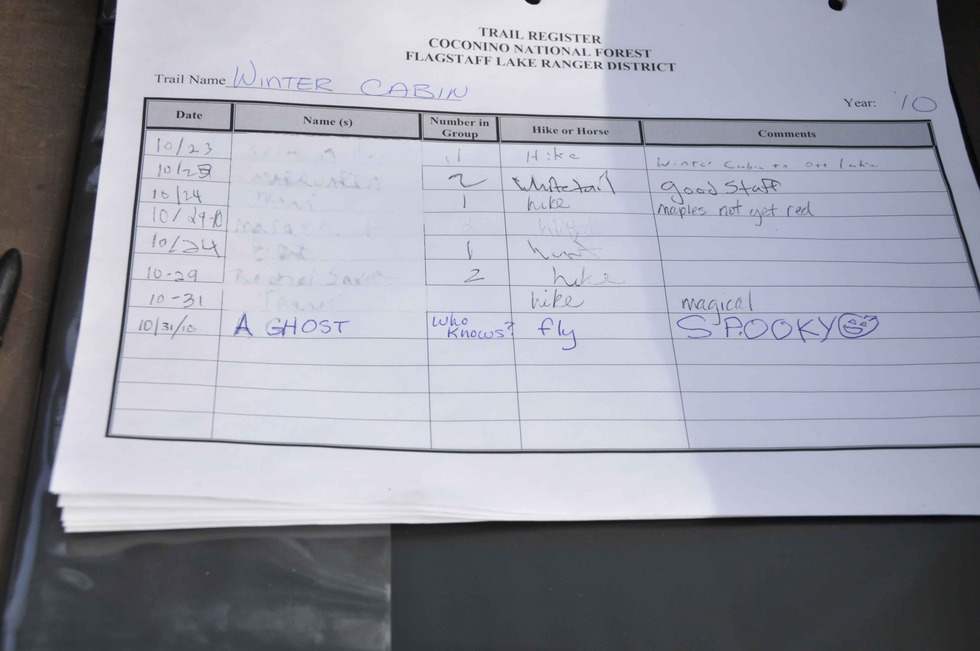 TRAIL REGISTER
COCONINO NATIONAL FOREST
FLAGSTAFF LAKE RANGER DISTRICT
Trail Name WINTER CABIN
Year: '10
Date Name (s) Number in Group Hike or Horse Comments
10/23 1 Hike Winter Cabin to
10/25 2 whitetail good Staff
10/24 1 hike maples not yet red
10/24 2
10/24 1 hunt
10-29 2 hike
10-31 hike magical
10/31/10 A GHOST Who Knows? fly SPOOKY